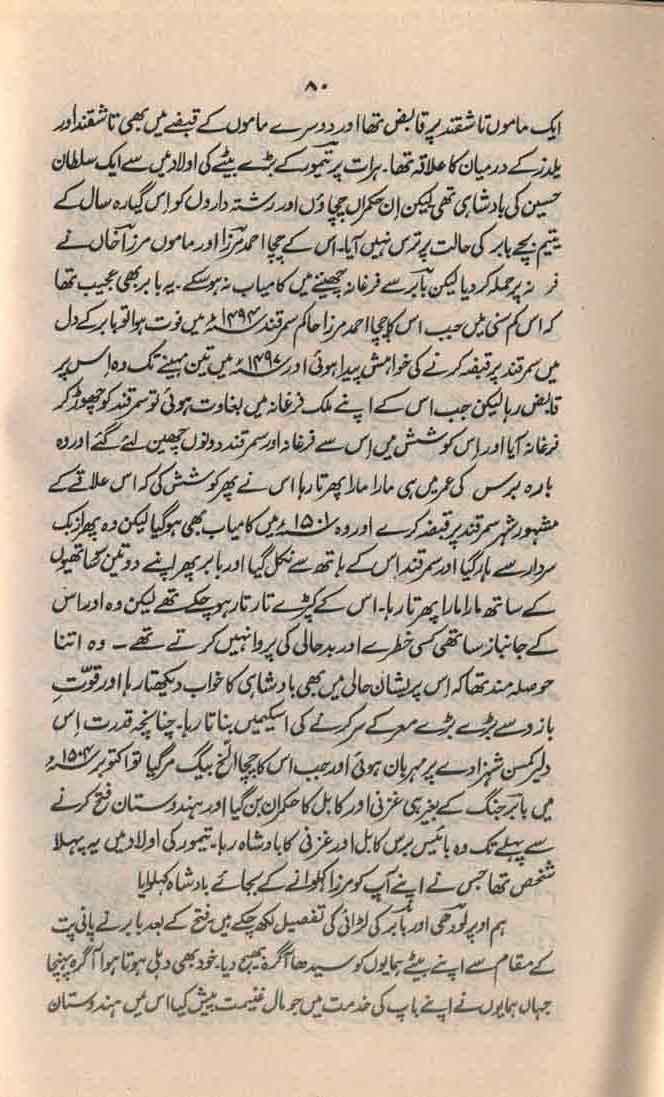 ۸۰
ایک ماموں تاشقند پر قابض تھا اور دوسرے ماموں کے قبضے میں بھی تاشقند اور
یلدز کے درمیان کا علاقہ تھا۔ ہرات پر تیمور کے بڑے بیٹے کی اولاد میں سے ایک سلطان
حسین کی بادشاہی تھی لیکن اِن حکمراں چچاؤں اور رشتہ داروں کو اس گیارہ سال کے
یتیم بچے بابر کی حالت پر ترس نہیں آیا۔ اس کے چچا احمد مرزا اور ماموں مرزا خاں نے
فر نہ پر حملہ کر دیا لیکن بابر سے فرغانہ چھیننے میں کامیاب نہ ہو سکے۔ یہ بابر بھی عجیب تھا
کہ اس کم سنی میں جب اس کا چچا احمد مرزا حاکم سمرقند ۱۴۹۴ء میں فوت ہوا تو بابر کے دل
میں سمرقند پر قبضہ کرنے کی خواہش پیدا ہوئی اور ۱۴۹۷ء میں تین مہینے تک وہ اِس پر
قابض رہا لیکن جب اس کے اپنے ملک فرغانہ میں بغاوت ہوئی تو سمرقند کو چھوڑ کر
فرغانہ آیا اور اِس کوشش میں اِس سے فرغانہ اور سمرقند دونوں چھین لئے گئے اور وہ
بارہ برس کی عمر میں ہی مارا مارا پھرتا رہا اس نے پھر کوشش کی کہ اس علاقے کے
مشہور شہر سمرقند پر قبضہ کرے اور وہ ۱۵۰۱ء میں کامیاب بھی ہو گیا لیکن وہ پھر ازبک
سردار سے ہار گیا اور سمرقند اس کے ہاتھ سے نکل گیا اور بابر پھر اپنے دو تین ساتھیوں
کے ساتھ مارا مارا پھرتا رہا۔ اس کے کپڑے تار تار ہو چکے تھے لیکن وہ اور اس
کے جانباز ساتھی کسی خطرے اور بدحالی کی پروا نہیں کرتے تھے۔ وہ اتنا
حوصلہ مند تھا کہ اس پریشان حالی میں بھی بادشاہی کا خواب دیکھتا رہا اور قوّتِ
بازو سے بڑے بڑے معرکے سر کرنے کی اسکیمیں بناتا رہا۔ چنانچہ قدرت اِس
دلیر کمسن شہزادے پر مہربان ہوئی اور جب اس کا چچا الغ بیگ مر گیا تو اکتوبر ۱۵۰۴ء
میں بابر جنگ کے بغیر ہی غزنی اور کابل کا حکمران بن گیا اور ہندوستان فتح کرنے
سے پہلے تک وہ بائیس برس کابل اور غزنی کا بادشاہ رہا۔ تیمور کی اولاد میں یہ پہلا
شخص تھا جس نے اپنے آپ کو مرزا کہلوانے کے بجائے بادشاہ کہلوایا
ہم اوپر لودھی اور بابر کی لڑائی کی تفصیل لکھ چکے ہیں فتح کے بعد بابر نے پانی پت
کے مقام سے اپنے بیٹے ہمایوں کو سیدھا آگرہ بھیج دیا۔ خود بھی دہلی ہوتا ہوا آگرہ پہنچا
جہاں ہمایوں نے اپنے باپ کی خدمت میں جو مال غنیمت پیش کیا اس میں ہندوستان